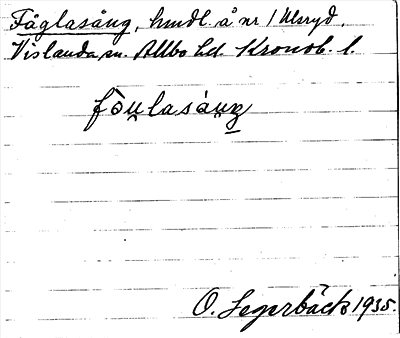 Fåglasång, hmdl. å nr 1 Ulsryd,
Vislanda sn. Allbo hd. Kronob. l.
fòu̯lasáu̯ŋ
O. Segerbäck 1935.